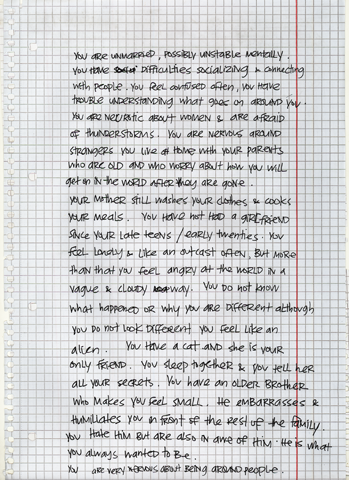 YOU ARE UNMARRIED, POSSIBLY UNSTABLE MENTALLY.
YOU HAVE DIFFICULTIES SOCIALIZING & CONNECTING
WITH PEOPLE. YOU FEEL CONFUSED OFTEN, YOU HAVE
TROUBLE UNDERSTANDING WHAT GOES ON AROUND YOU.
YOU ARE NEUROTIC ABOUT WOMEN & ARE AFRAID
OF THUNDERSTORMS. YOU ARE NERVOUS AROUND
STRANGERS YOU LIVE AT HOME WITH YOUR PARENTS
WHO ARE OLD AND WHO WORRY ABOUT HOW YOU WILL
GET ON IN THE WORLD AFTER THEY ARE GONE.
YOUR MOTHER STILL WASHES YOUR CLOTHES & COOKS
YOUR MEALS. YOU HAVE NOT HAD A GIRLFRIEND
SINCE YOUR LATE TEENS / EARLY TWENTIES. YOU
FEEL LONELY & LIKE AN OUTCAST OFTEN, BUT MORE
THAN THAT YOU FEEL ANGRY AT THE WORLD IN A
VAGUE & CLOUDY WAY. YOU DO NOT KNOW
WHAT HAPPENED OR WHY YOU ARE DIFFERENT ALTHOUGH
YOU DO NOT LOOK DIFFERENT YOU FEEL LIKE AN
ALIEN. YOU HAVE A CAT AND SHE IS YOUR
ONLY FRIEND. YOU SLEEP TOGETHER & YOU TELL HER
ALL YOUR SECRETS. YOU HAVE AN OLDER BROTHER
WHO MAKES YOU FEEL SMALL. HE EMBARRASSES &
HUMILIATES YOU IN FRONT OF THE REST OF THE FAMILY.
YOU HATE HIM BUT ARE ALSO IN AWE OF HIM. HE IS WHAT
YOU ALWAYS WANTED TO BE.
YOU ARE VERY NERVOUS ABOUT BEING AROUND PEOPLE.